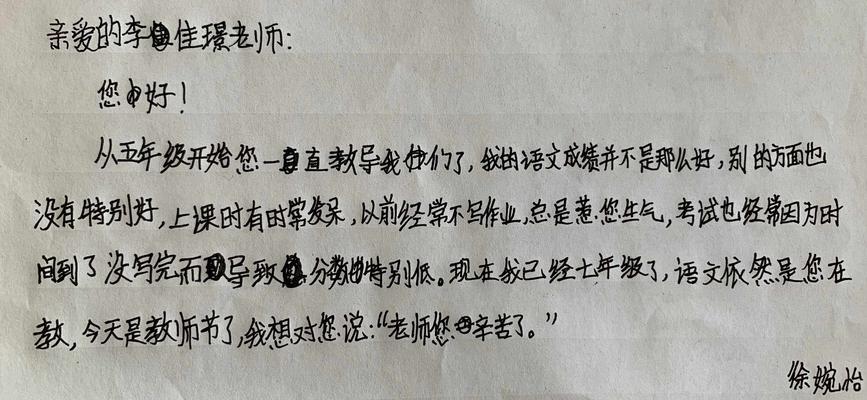 亲爱的李佳璟老师:
您好!
从五年级开始您一直教导我们了,我的语文成绩并不是那么好,别的方面也
没有特别好,上课时有时常发呆,以前经常不写作业,总是惹您生气,考试也经常因为时
间到了没写完而导致分数特别低。现在我已经七年级了,语文依然是您在
教,今天是教师节了,我想对您说:“老师您辛苦了。”
徐婉怡